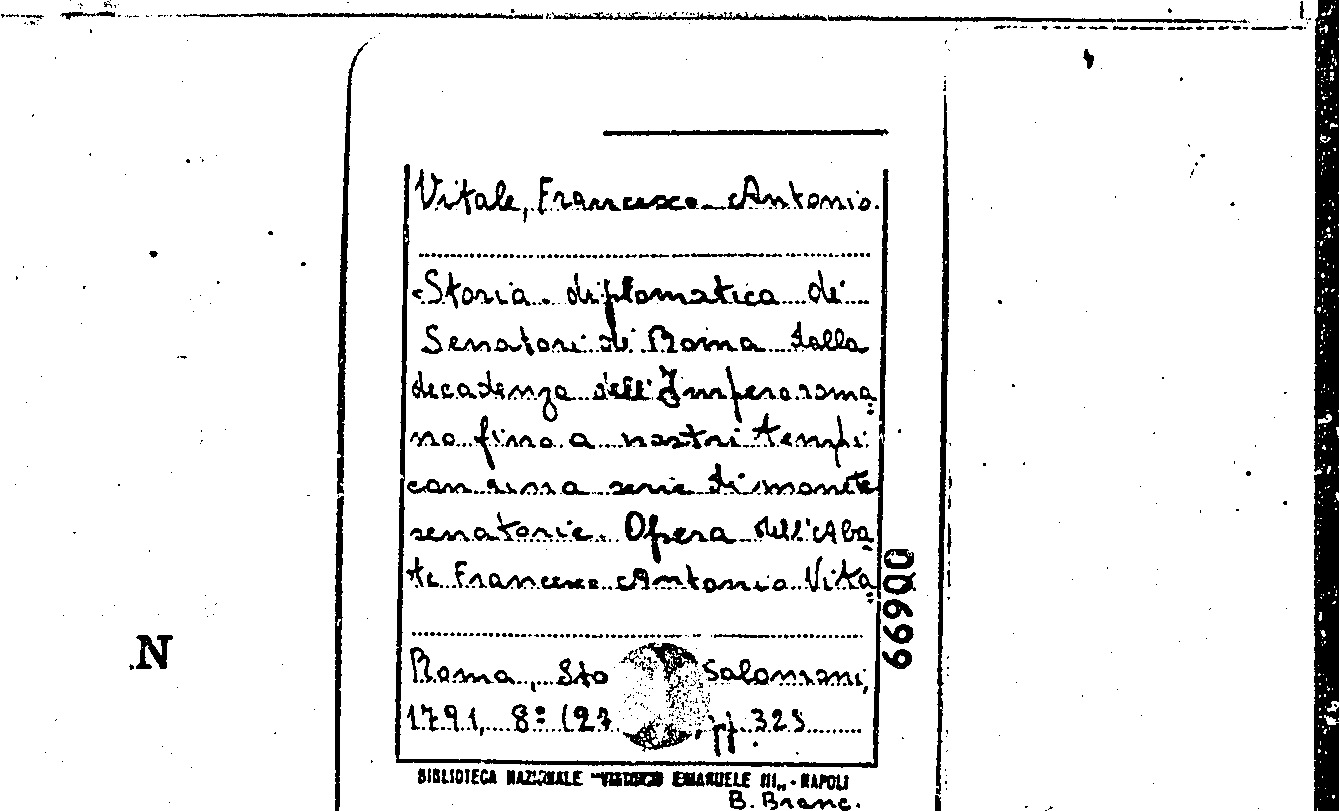 Vitale, Francesco Antonio.
Storia diplomatica de'
Senatori di Roma dalla
decadenza dell'Impero roma=
no fino a nostri tempi
con una serie di monete
senatorie. Opera dell'Aba=
te Francesco Antonio Vita=
Roma, Sto Salomoni,
1791, 8º (23 pp. 325
BIBLIOTECA NAZIONALE "VITTORIO EMANUELE III„ - NAPOLI
B. Branc.
66900
N